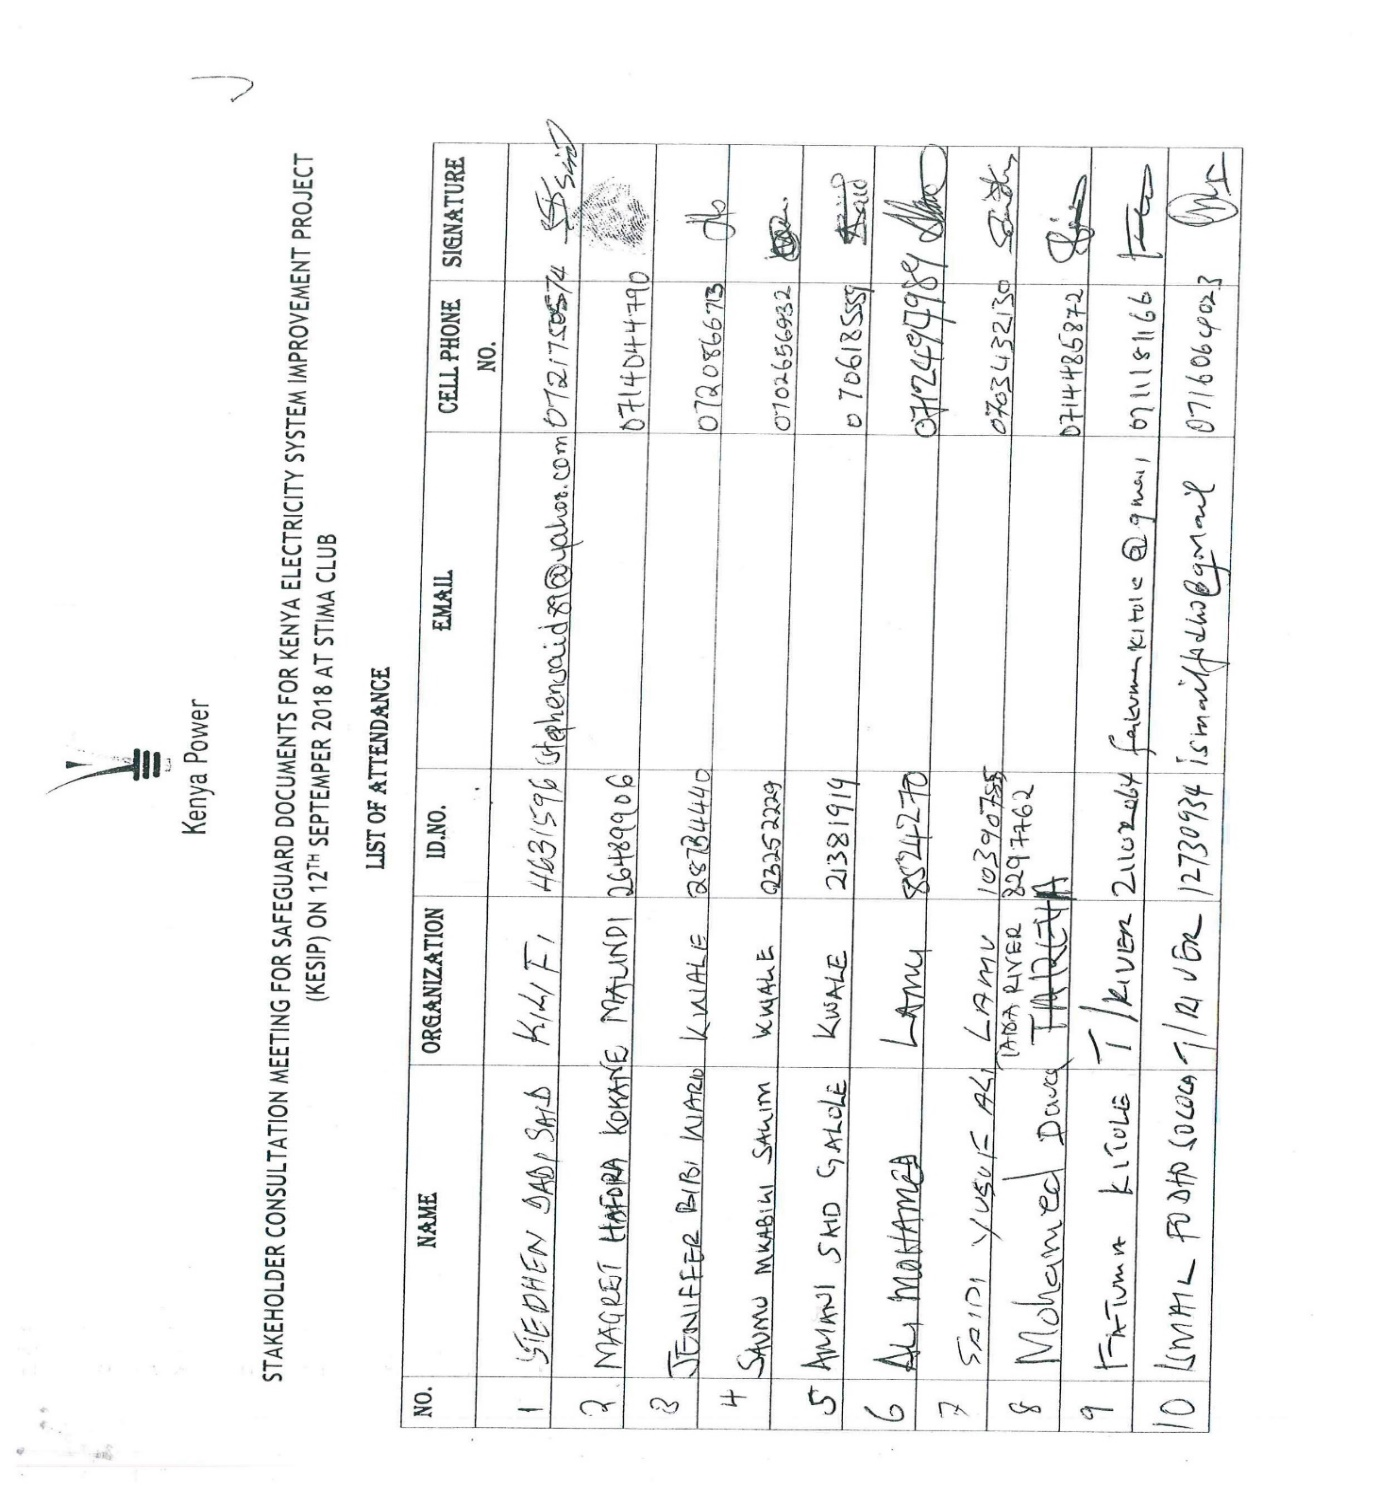 Kenya Power
STAKEHOLDER CONSULTATION MEETING FOR SAFEGUARD DOCUMENTS FOR KENYA ELECTRICITY SYSTEM IMPROVEMENT PROJECT
(KESIP) ON 12TH SEPTEMBER 2018 AT STIMA CLUB
LIST OF ATTENDANCE
NO. NAME ORGANIZATION ID.NO. EMAIL CELL PHONE NO. SIGNATURE
1 STEPHEN DADI SAID KILIFI 4631596 stephensaid89@yahoo.com
2 MAGRET HAFORA KOKANE MALINDI 26489906 0714044790
3 JENIFFER BIBI WARIO KWALE 28734440 0720866713
4 SAUMU MKABILI SALIM KWALE 23252229 0702656932
5 AMANI SAID GALOLE KWALE 21381919 0706185559
6 ALI MOHAMED LAMU 8524270
7 SAIDI YUSUF ALI LAMU 10390755 0703432130
8 Mohamed Dawa TANA RIVER 8297762 0714485872
9 FATUMA KITOLE T/RIVER 0711181166
10 ISMAIL FODHO T/RIVER 12730934 0716064023